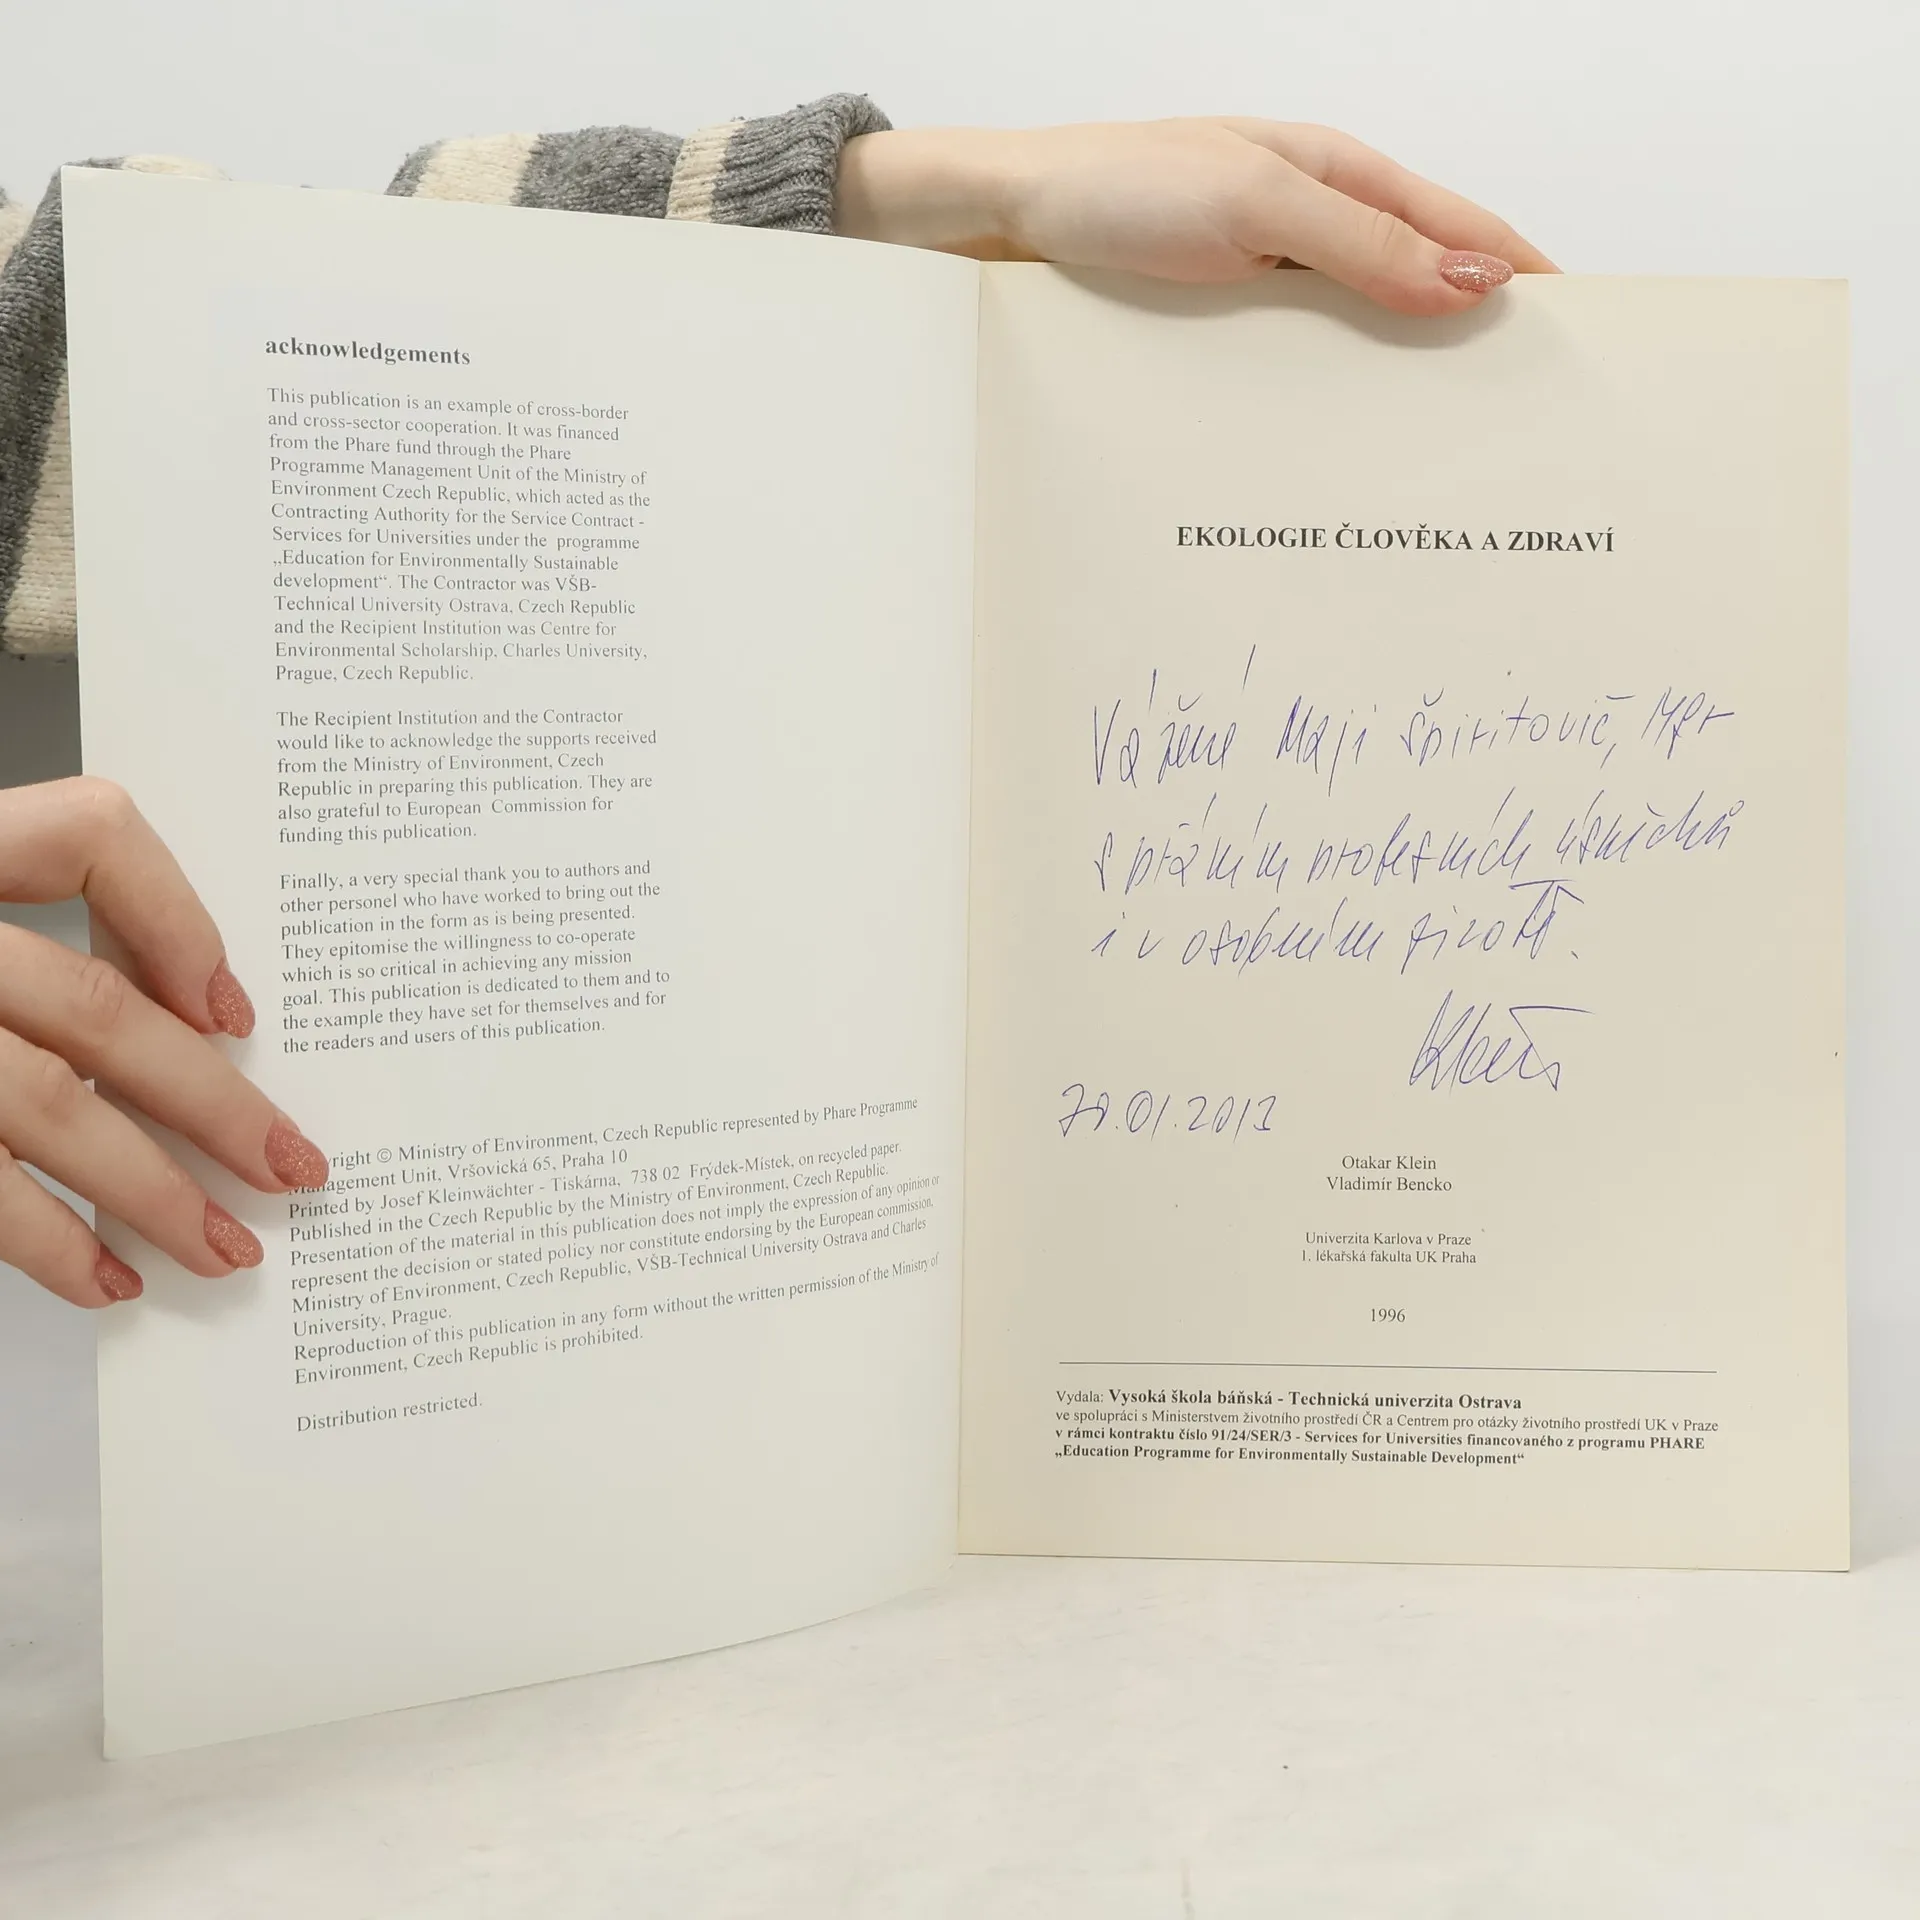 acknowledgements
This publication is an example of cross-border
and cross-sector cooperation. It was financed
from the Phare fund through the Phare
Programme Management Unit of the Ministry of
Environment Czech Republic, which acted as the
Contracting Authority for the Service Contract -
Services for Universities under the programme
„Education for Environmentally Sustainable
development“. The Contractor was VŠB-
Technical University Ostrava, Czech Republic
and the Recipient Institution was Centre for
Environmental Scholarship, Charles University,
Prague, Czech Republic.
The Recipient Institution and the Contractor
would like to acknowledge the supports received
from the Ministry of Environment, Czech
Republic in preparing this publication. They are
also grateful to European Commission for
funding this publication.
Finally, a very special thank you to authors and
other personel who have worked to bring out the
publication in the form as is being presented.
They epitomise the willingness to co-operate
which is so critical in achieving any mission
goal. This publication is dedicated to them and to
the example they have set for themselves and for
the readers and users of this publication.
right © Ministry of Environment, Czech Republic represented by Phare Programme
Management Unit, Vršovická 65, Praha 10
Printed by Josef Kleinwächter - Tiskárna, 738 02 Frýdek-Místek, on recycled paper.
Published in the Czech Republic by the Ministry of Environment, Czech Republic.
Presentation of the material in this publication does not imply the expression of any opinion or
represent the decision or stated policy nor constitute endorsing by the European commission,
Ministry of Environment, Czech Republic, VŠB-Technical University Ostrava and Charles
University, Prague.
Reproduction of this publication in any form without the written permission of the Ministry of
Environment, Czech Republic is prohibited.
Distribution restricted.
EKOLOGIE ČLOVĚKA A ZDRAVÍ
Vážené Maji Špiritovič, Mgr
s přáním profesních úspěchů
i v osobním životě.
Klein
.01.2013
Otakar Klein
Vladimír Bencko
Univerzita Karlova v Praze
1. lékařská fakulta UK Praha
1996
Vydala: Vysoká škola báňská - Technická univerzita Ostrava
ve spolupráci s Ministerstvem životního prostředí ČR a Centrem pro otázky životního prostředí UK v Praze
v rámci kontraktu číslo 91/24/SER/3 - Services for Universities financovaného z programu PHARE
„Education Programme for Environmentally Sustainable Development“